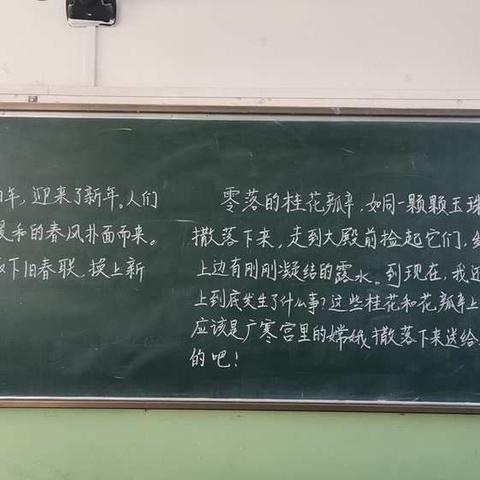 年，迎来了新年。人们
和的春风扑面而来。
下旧春联，换上新
零落的桂花瓣，如同一颗颗玉珠
撒落下来，走到大殿前捡起它们，
上边有刚刚凝结的露水。到现在，我还
上到底发生了什么事？这些桂花和花瓣上
应该是广寒宫里的嫦娥撒落下来送给
的吧！